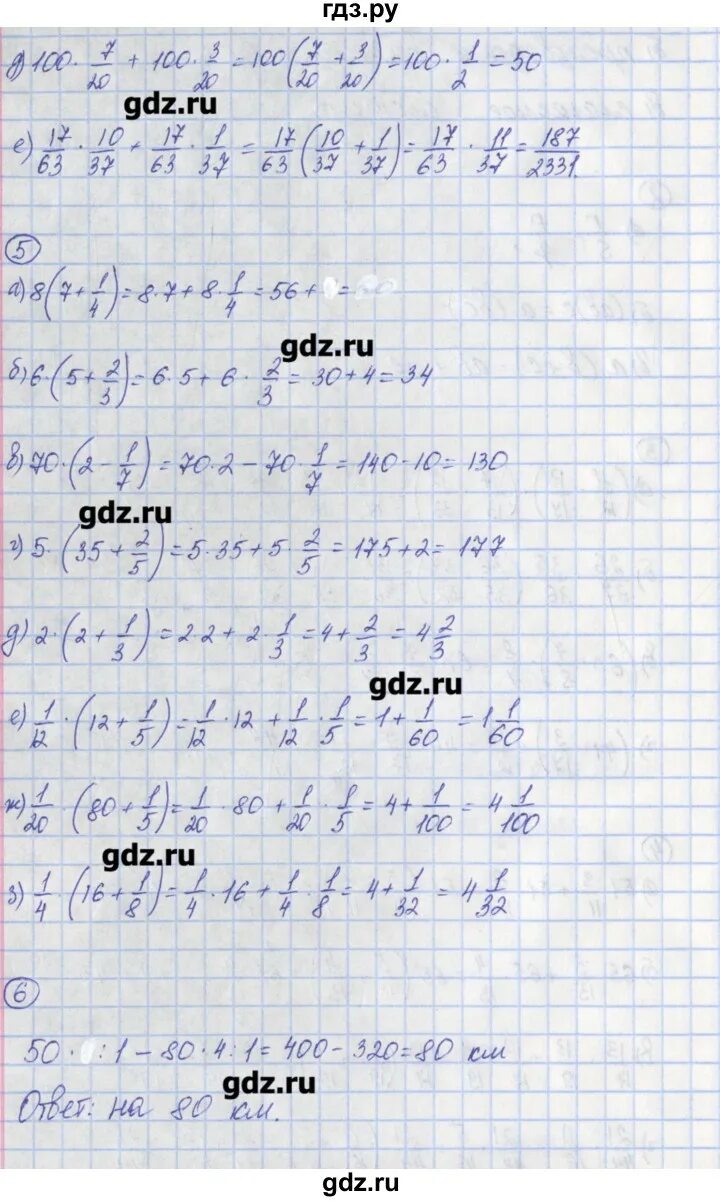 гдз.ру
д) 100 · 7/20 + 100 · 3/20 = 100(7/20 + 3/20) = 100 · 1/2 = 50
gdz.ru
е) 17/63 · 10/37 + 17/63 · 1/37 = 17/63(10/37 + 1/37) = 17/63 · 11/37 = 187/2331.
5
а) 8(7 + 1/4) = 8 · 7 + 8 · 1/4 = 56 + =
gdz.ru
б) 6 · (5 + 2/3) = 6 · 5 + 6 · 2/3 = 30 + 4 = 34
в) 70 · (2 - 1/7) = 70 · 2 - 70 · 1/7 = 140 - 10 = 130
gdz.ru
г) 5 · (35 + 2/5) = 5 · 35 + 5 · 2/5 = 175 + 2 = 177
д) 2 · (2 + 1/3) = 2 · 2 + 2 · 1/3 = 4 + 2/3 = 4 2/3
gdz.ru
е) 1/12 · (12 + 1/5) = 1/12 · 12 + 1/12 · 1/5 = 1 + 1/60 = 1 1/60
ж) 1/20 · (80 + 1/5) = 1/20 · 80 + 1/20 · 1/5 = 4 + 1/100 = 4 1/100
gdz.ru
з) 1/4 · (16 + 1/8) = 1/4 · 16 + 1/4 · 1/8 = 4 + 1/32 = 4 1/32
6
50 · : 1 - 80 · 4 : 1 = 400 - 320 = 80 км
gdz.ru
Ответ: на 80 км.
gdz.ru